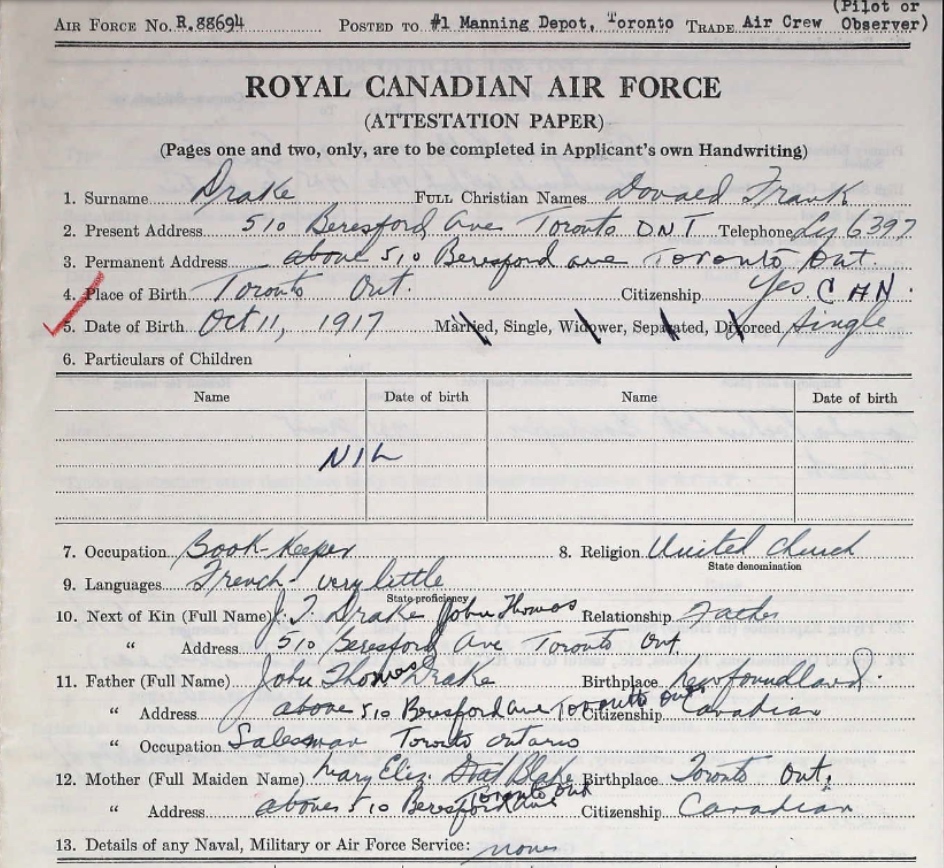 (Pilot or
AIR FORCE NO. R.88694 POSTED TO #1 Manning Depot, Toronto TRADE Air Crew Observer)
ROYAL CANADIAN AIR FORCE
(ATTESTATION PAPER)
(Pages one and two, only, are to be completed in Applicant's own Handwriting)
1. Surname Drake FULL Christian Names Donald Frank
2. Present Address 510 Beresford Ave Toronto ONT Telephone Ly 6397
3. Permanent Address above 510 Beresford ave Toronto Ont.
4. Place of Birth Toronto Ont. Citizenship Yes. CAN.
5. Date of Birth Oct 11, 1917 Married, Single, Widower, Separated, Divorced Single
6. Particulars of Children
Name Date of birth Name Date of birth
NIL
7. Occupation Book-Keeper 8. Religion United Church
State denomination
9. Languages French - very little
State proficiency
10. Next of Kin (Full Name) J. T. Drake John Thomas Relationship Father
" Address 510 Beresford Ave Toronto Ont.
11. Father (Full Name) John Thomas Drake Birthplace Newfoundland.
" Address above 510 Beresford ave Toronto Ont Citizenship Canadian
" Occupation Salesman Toronto Ontario
12. Mother (Full Maiden Name) Mary Eliz. Blake Birthplace Toronto Ont.
" Address above 510 Beresford ave Toronto Ont Citizenship Canadian
13. Details of any Naval, Military or Air Force Service: none